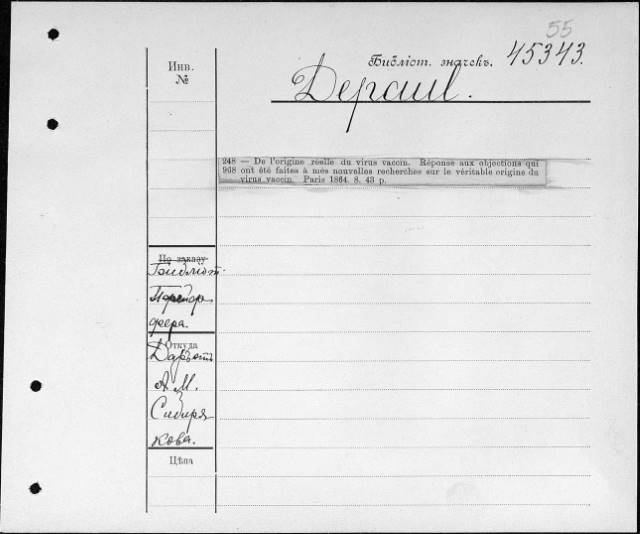 55
Библіот. значекъ. 45343.
Инв.
№
Depaul.
248 — De l'origine réelle du virus vaccin. Réponse aux objections qui
968 ont été faites à mes nouvelles recherches sur le véritable origine du
virus vaccin. Paris 1864. 8. 43 p.
По заказу
Библіот.
Порфир
Откуда
Даръ отъ
А. М.
Сибиря-
кова.
Цѣна